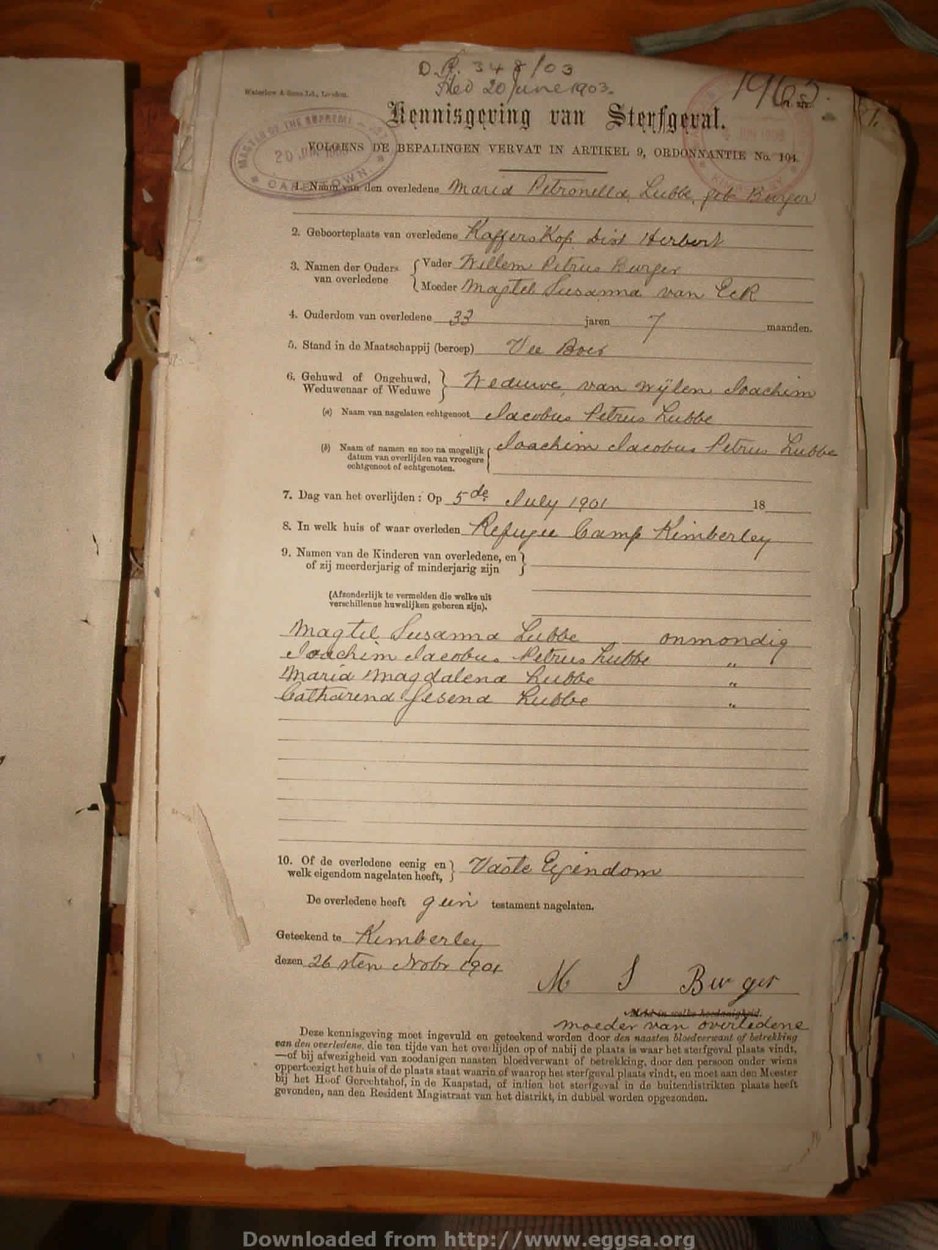 D.R. 348/03
Filed 20 June 1903.
1965.
Waterlow & Sons Ld., London.
Kennisgeving van Sterfgeval.
VOLGENS DE BEPALINGEN VERVAT IN ARTIKEL 9, ORDONNANTIE No. 104.
MASTER OF THE SUPREME
20 JUN 1903
CAPE TOWN
1. Naam van den overledene Maria Petronella Lubbe, geb Burger
2. Geboorteplaats van overledene Kaffers Kop Dist Herbert
3. Namen der Ouders van overledene { Vader Willem Petrus Burger
Moeder Magtel Susanna van Eck
4. Ouderdom van overledene 33 jaren 7 maanden.
5. Stand in de Maatschappij (beroep) Vee Boer
6. Gehuwd of Ongehuwd, Weduwenaar of Weduwe } Weduwe van wijlen Joachim
(a) Naam van nagelaten echtgenoot Jacobus Petrus Lubbe
(b) Naam of namen en zoo na mogelijk datum van overlijden van vroegere echtgenoot of echtgenoten. { Joachim Jacobus Petrus Lubbe
7. Dag van het overlijden: Op 5de July 1901 18
8. In welk huis of waar overleden Refugee Camp Kimberley
9. Namen van de Kinderen van overledene, en of zij meerderjarig of minderjarig zijn }
(Afzonderlijk te vermelden die welke uit
verschillenne huwelijken geboren zijn).
Magtel Susanna Lubbe onmondig
Joachim Jacobus Petrus Lubbe "
Maria Magdalena Lubbe "
Catharena Gesena Lubbe "
10. Of de overledene eenig en welk eigendom nagelaten heeft, } Vaste Eigendom
De overledene heeft geen testament nagelaten.
Geteekend te Kimberley
dezen 26sten Novbr 1901
M S Burger
Meld in welke hoedanigheid.
moeder van overledene
Deze kennisgeving moet ingevuld en geteekend worden door den naasten bloedverwant of betrekking
van den overledene, die ten tijde van het overlijden op of nabij de plaats is waar het sterfgeval plaats vindt,
—of bij afwezigheid van zoodanigen naasten bloedverwant of betrekking, door den persoon onder wiens
oppertoezigt het huis of de plaats staat waarin of waarop het sterfgeval plaats vindt, en moet aan den Meester
bij het Hoof Gerechtshof, in de Kaapstad, of indien het sterfgeval in de buitendistrikten plaats heeft
gevonden, aan den Resident Magistraat van het distrikt, in dubbel worden opgezonden.
Downloaded from http://www.eggsa.org